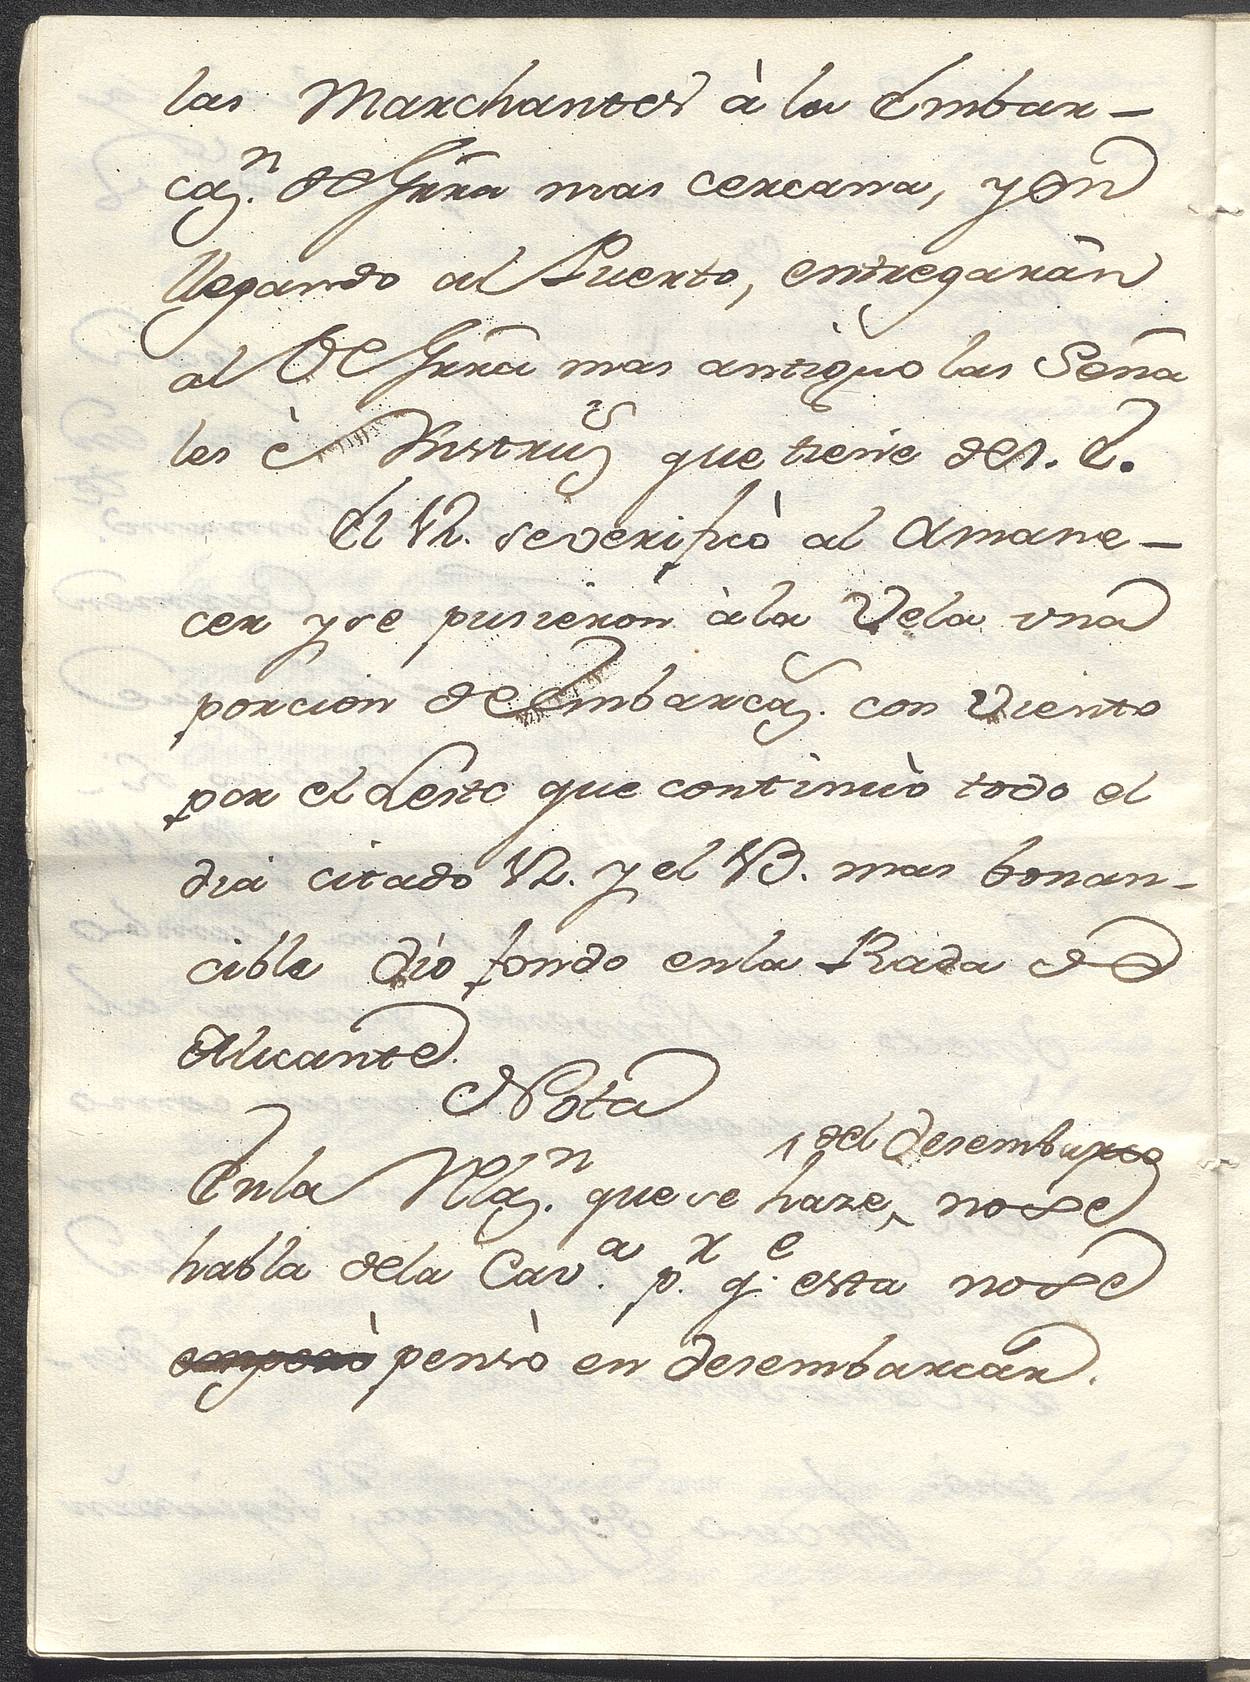 las Marchantes à la Embar-
caz.n de Grra mas cercana, y en
llegando al Puerto, entregarán
al de Grra mas antiguo las Seña
les è Instruz.s que tiene de S. E.
El 12. se verificò al amane-
cer y se pusieron à la Vela una
porcion de Embarcaz.s con Viento
por el Leste que continuò todo el
dia citado 12. y el 13. mas bonan-
cible dio fondo en la Rada de
Alicante.
Nota
del desembarco
En la Rlaz.n que se haze, no se
habla de la Cav.a p.r q.e esta no se
empeñò pensò en desembarcar.